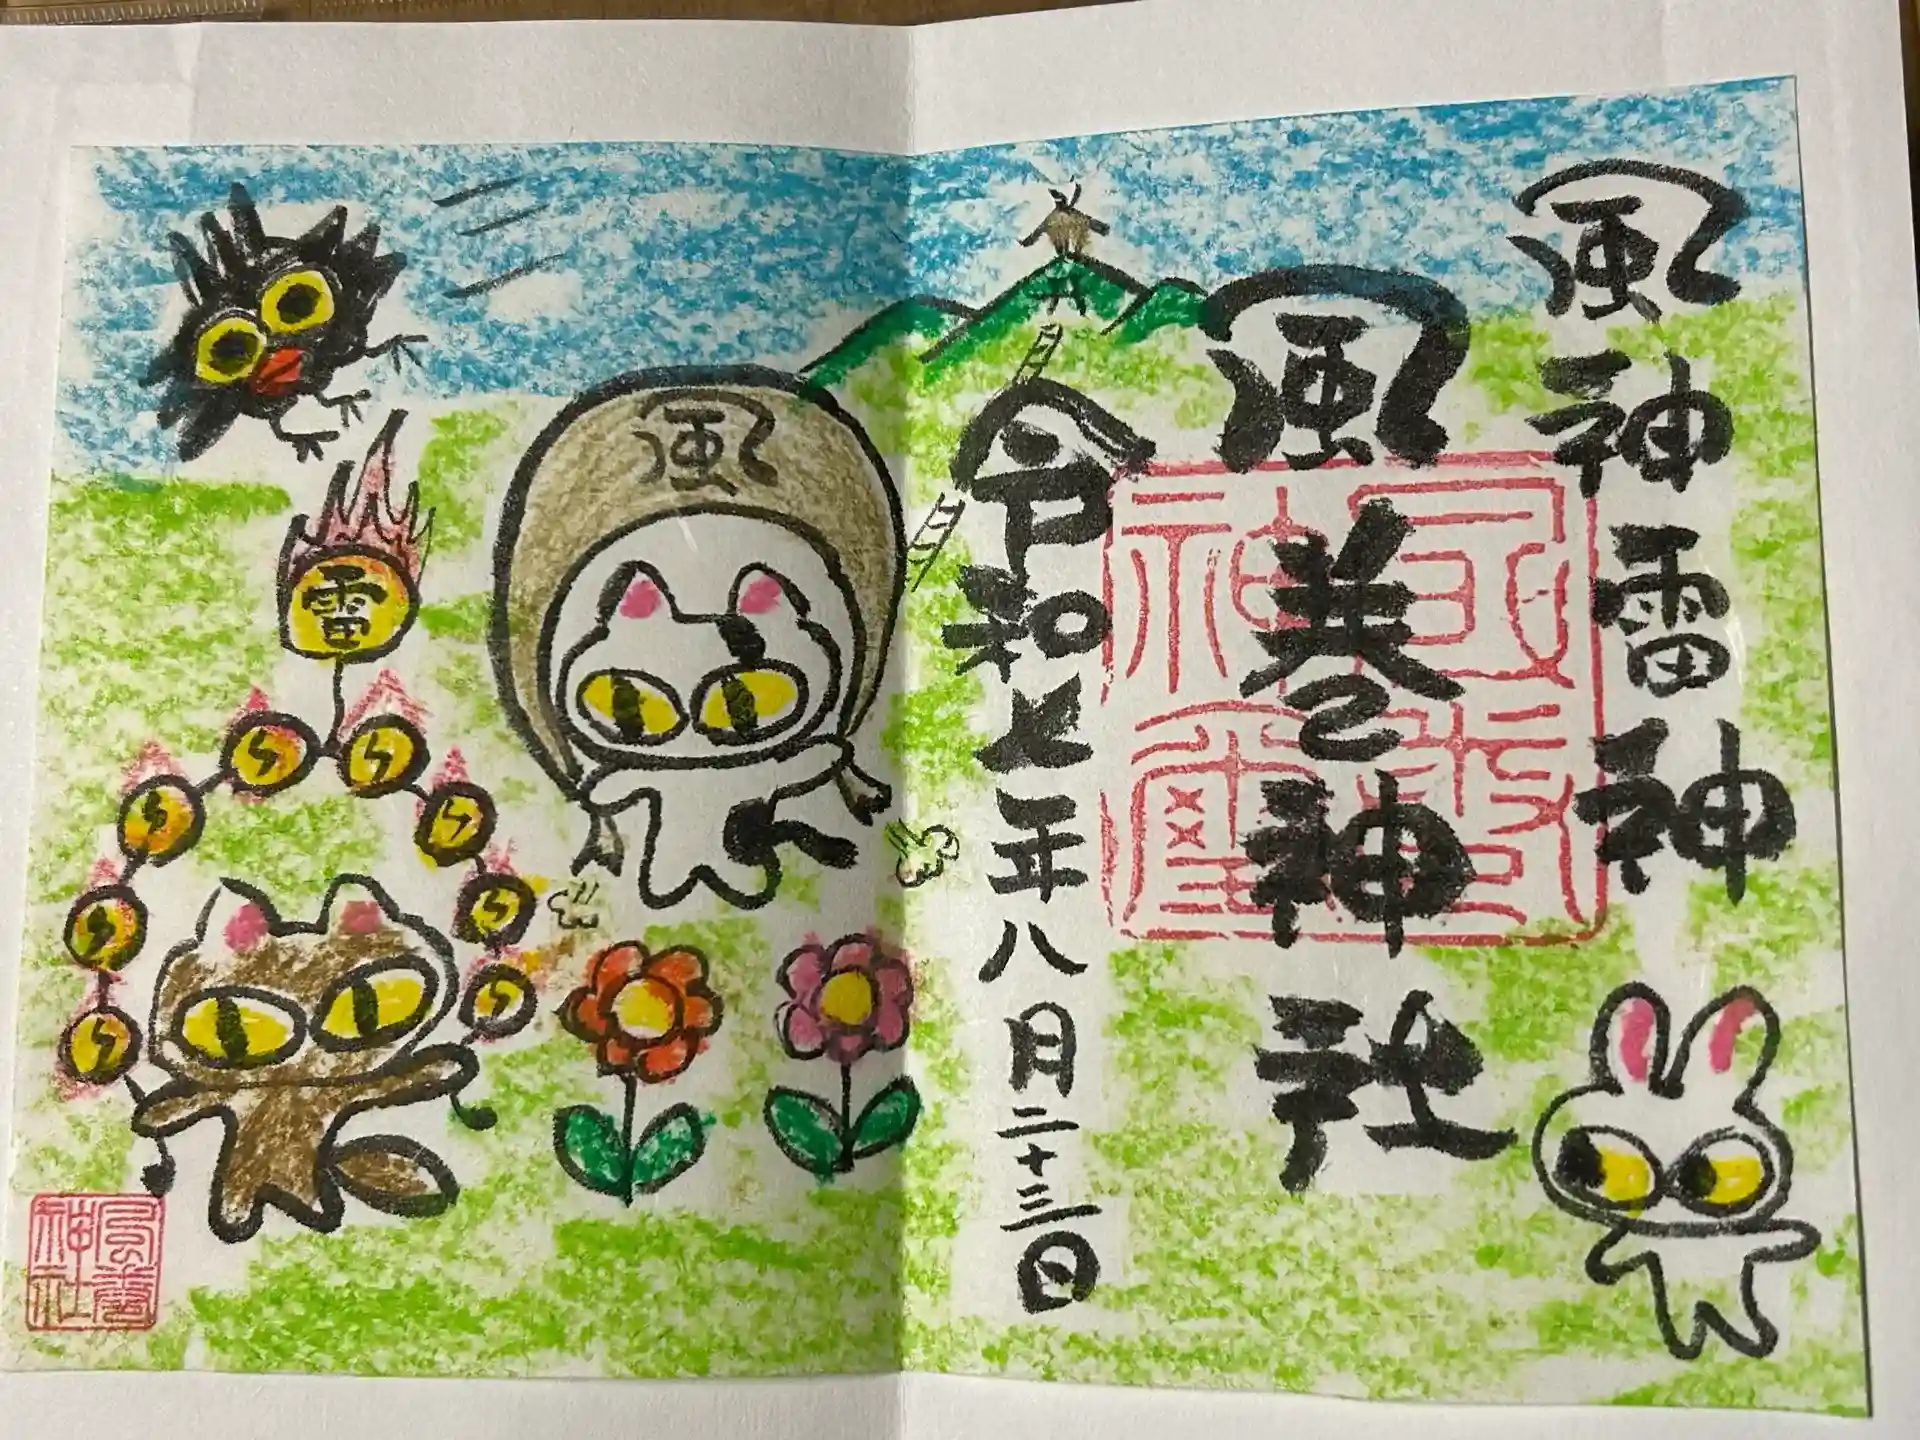 風神雷神
風巻神社
令和七年八月二十三日
風
雷
風巻
神社